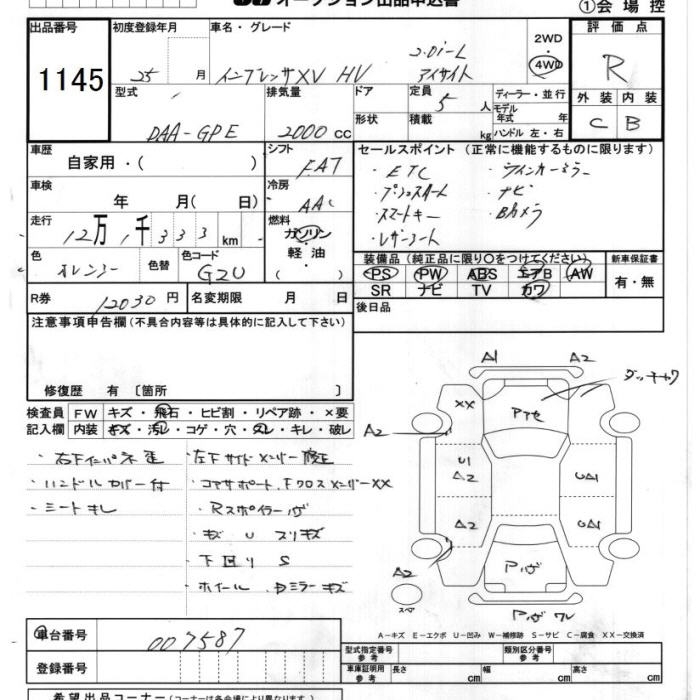 オークション出品申込書
①会場控
出品番号
1145
初度登録年月
25 月
車名・グレード
インプレッサXV HV
2.0i-L
アイサイト
2WD
4WD
評価点
R
外装 内装
C B
型式
DAA-GPE
排気量
2000 cc
ドア
形状
定員
5 人
積載
kg
ディーラー・並行
モデル
年式 年
ハンドル 左・右
車歴
自家用・( )
シフト
FAT
車検
年 月( 日)
冷房
AAC
走行
12万1千333 km
燃料
ガソリン
軽油
色
オレンジー
色替
色コード
G2U
セールスポイント (正常に機能するものに限ります)
・ETC ・ウインカーミラー
・プッシュスタート ・ナビ
・スマートキー ・Bカメラ
・レザーシート
装備品(純正品に限り○をつけてください)
PS PW ABS エアB AW
SR ナビ TV カワ
新車保証書
有・無
R券
12030円
名変期限 月 日
後日品
注意事項申告欄(不具合内容等は具体的に記入して下さい)
修復歴 有 〔箇所 〕
検査員
記入欄
FW キズ・飛石・ヒビ割・リペア跡・×要
内装 キズ・汚レ・コゲ・穴・スレ・キレ・破レ
・右下インパネ
・左下サイドメンバー修正
・ハンドルカバー付
・コアサポート、FクロスメンバーXX
・シートキレ
・Rスポイラー
・キズ U スリキズ
・下回り S
・ホイール、ドミラーキズ
A1
A2
XX
A2
U1
A2
A2
UA1
UA1
A2
スペア
A-キズ E-エクボ U-凹み W-補修跡 S-サビ C-腐食 XX-交換済
車台番号
007587
登録番号
型式指定番号
類別区分番号
参考
車庫証明用
参考
長さ cm
幅 cm
高さ cm
希望出品コーナー(コーナーは各会場により異なります。)